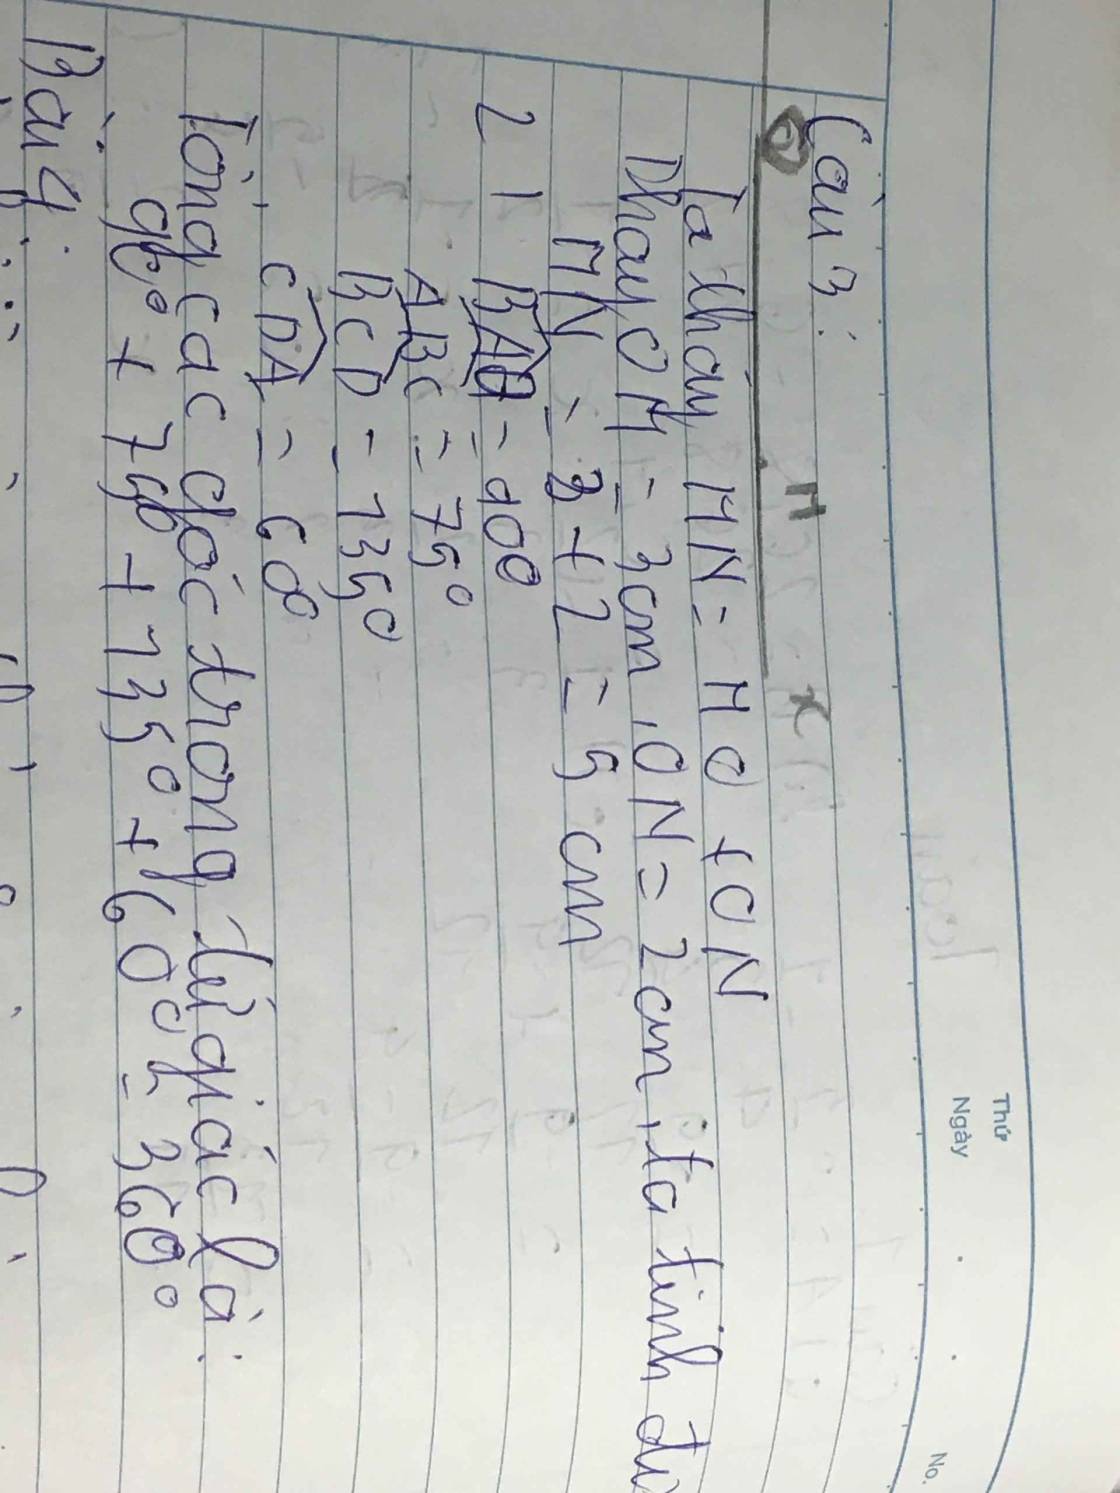 Thứ
Ngày
No.
Câu 3:
M x
Ta thấy MN = MO + ON
Thay OM = 3cm, ON = 2cm, ta tính đư
MN = 3 + 2 = 5 cm
2) BAD = 90°
ABC = 75°
BCD = 135°
CDA = 60°
Tổng các góc trong tứ giác là:
90° + 75° + 135° + 60° = 360°
Bài 4: